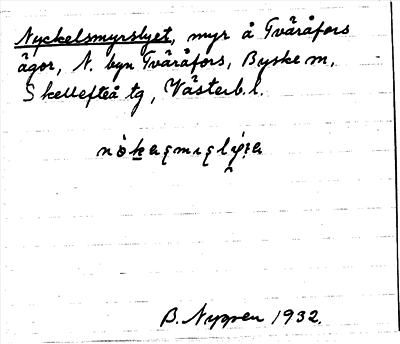 Nyckelsmyrslyet, myr å Tvåråfors
ägor, N. byn Tvåråfors, Byske sn,
Skellefteå tg, Västerb. l.
B. Nygren 1932.